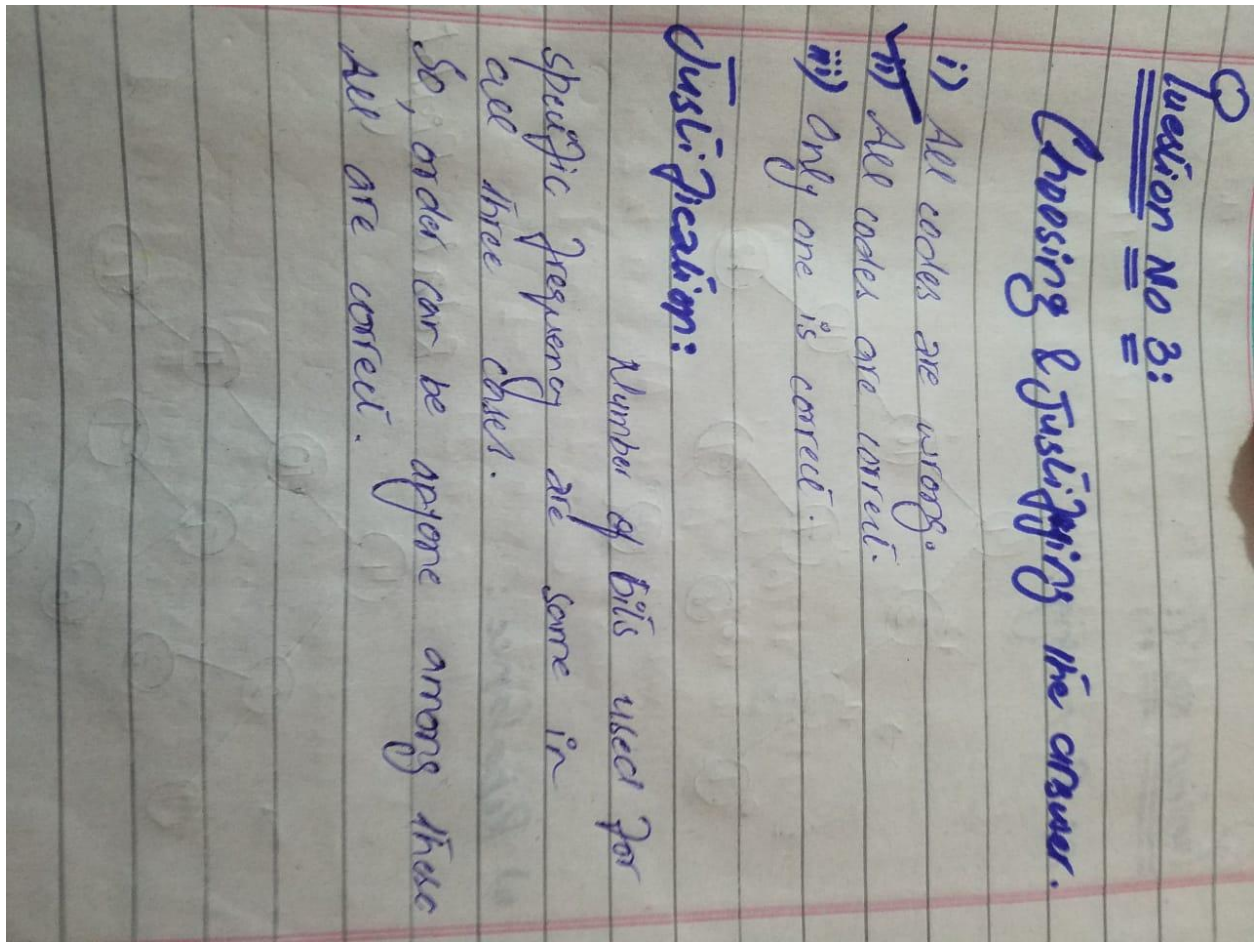 Question No 3:
Choosing & Justifying the answer.
i) All codes are wrong.
ii) All codes are correct.
iii) Only one is correct.
Justification:
Number of bits used for
specific frequency are same in
all three cases.
So, order can be anyone among these
All are correct.